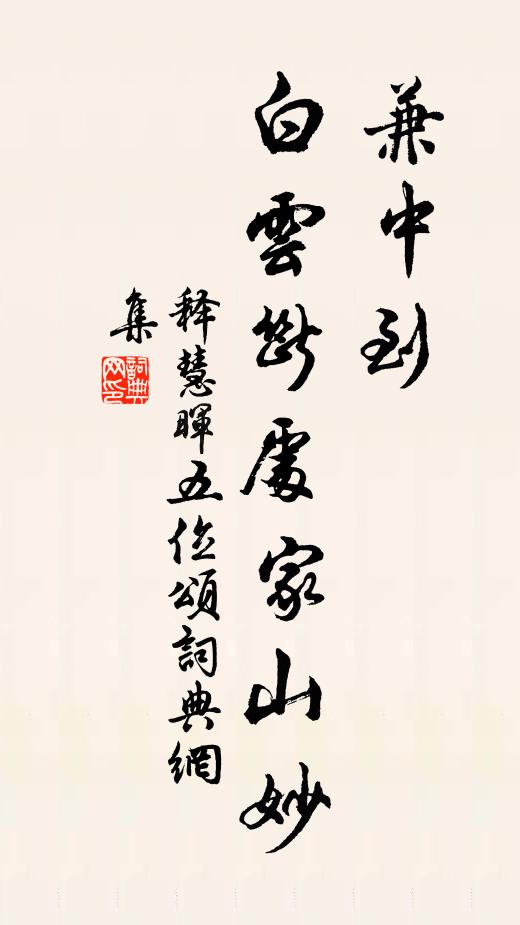 兼中到
白雲斷處家山妙
释慧暉五位頌詞典網
集
詞典网印